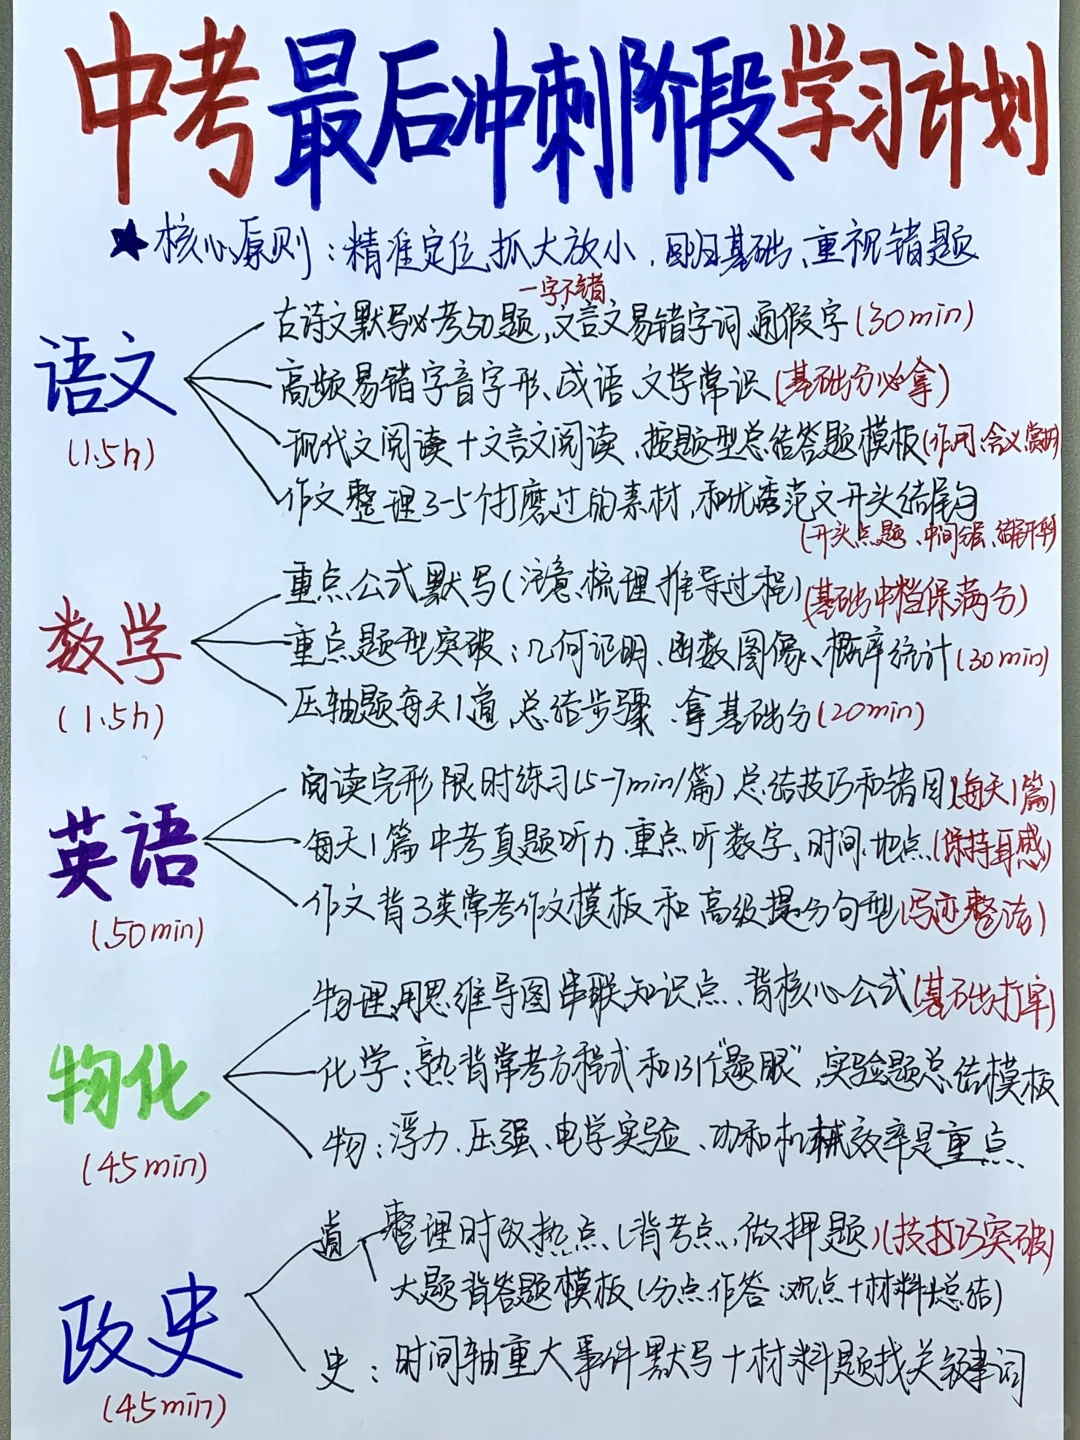 中考最后冲刺阶段学习计划
★核心原则：精准定位、抓大放小、回归基础、重视错题
一字不错
语文
(1.5h)
古诗文默写必考50题,文言文易错字词、通假字(30min)
高频易错字音字形、成语、文学常识(基础分必拿)
现代文阅读+文言文阅读、按题型总结答题模板(作用、含义、赏析)
作文整理3-5个打磨过的素材,和优秀范文开头结尾句
(开头点题、中间分层、结尾升华)
数学
(1.5h)
重点公式默写(注意梳理推导过程)(基础中档保满分)
重点题型突破：几何证明、函数图像、概率统计(30min)
压轴题每天1道、总结步骤、拿基础分(20min)
英语
(50min)
阅读完形限时练习(5-7min/篇)总结技巧和错因(每天1篇)
每天1篇中考真题听力、重点听数字、时间、地点(保持耳感)
作文背3类常考作文模板和高级提分句型(写迹整洁)
物化
(45min)
物理用思维导图串联知识点、背核心公式(基础打牢)
化学：熟背常考方程式和131个"题眼",实验题总结模板
物：浮力、压强、电学实验、功和机械效率是重点
政史
(45min)
道
整理时政热点、(背考点、做押题)(技打巧突破)
大题背答题模板(分点作答:观点+材料+总结)
史：时间轴重大事件默写+材料题找关键词